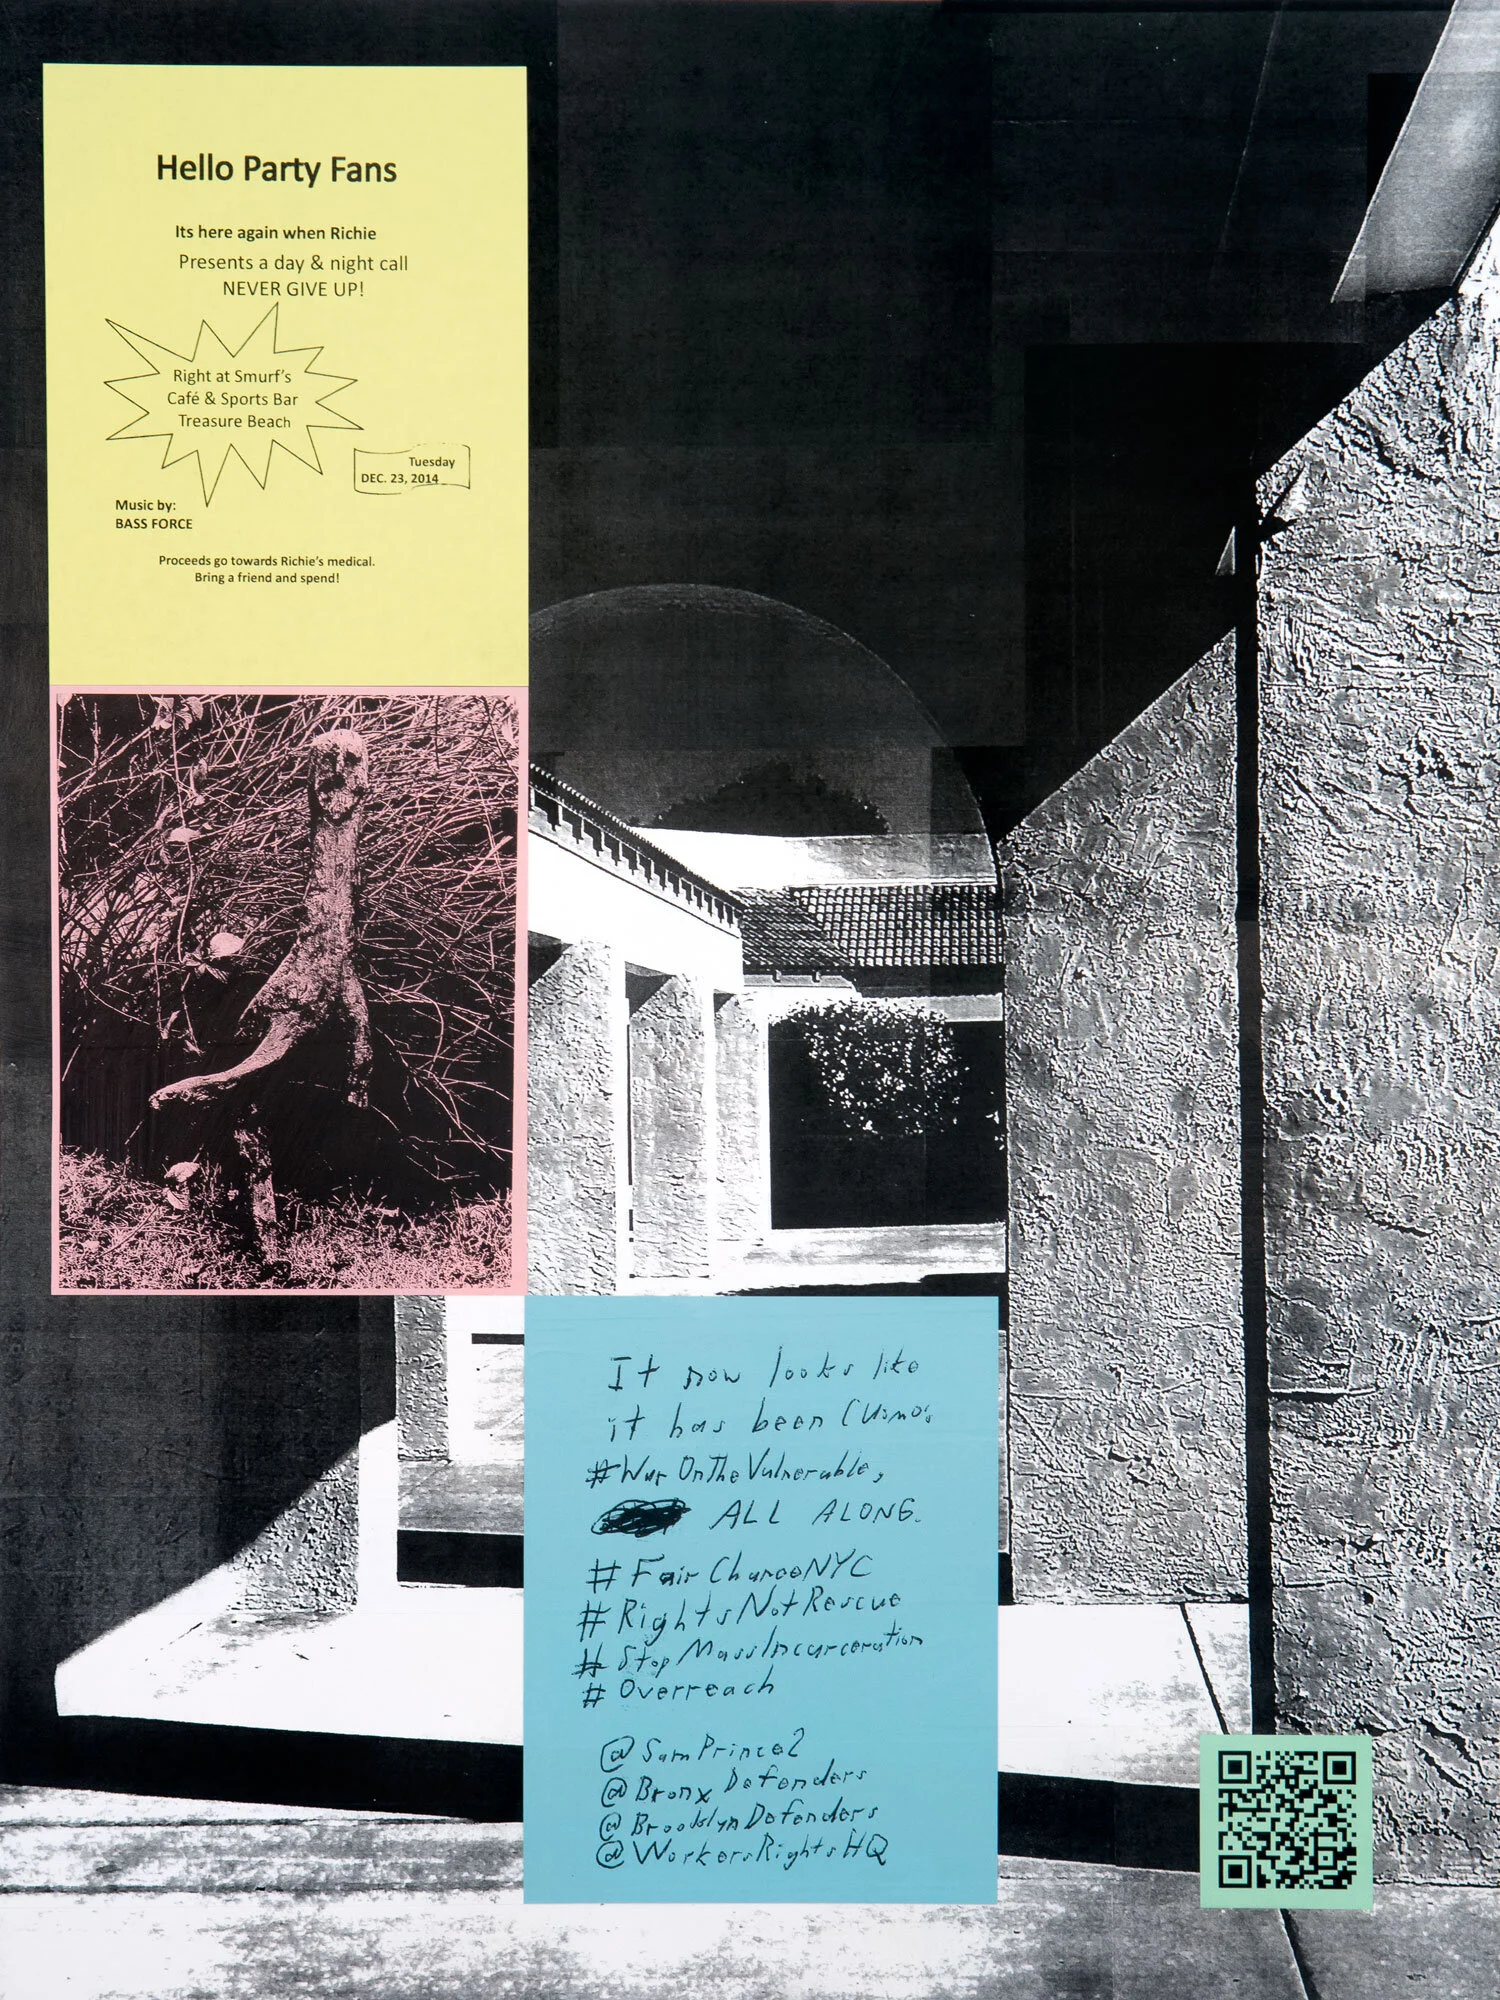 Hello Party Fans
Its here again when Richie
Presents a day & night call
NEVER GIVE UP!
Right at Smurf's
Café & Sports Bar
Treasure Beach
Tuesday
DEC. 23, 2014
Music by:
BASS FORCE
Proceeds go towards Richie's medical.
Bring a friend and spend!
It now looks like
it has been Cuomo's
#WarOnTheVulnerable,
ALL ALONG.
#FairChanceNYC
#RightsNotRescue
#StopMassIncarceration
#Overreach
@SamPrince2
@BronxDefenders
@BrooklynDefenders
@WorkersRightsHQ